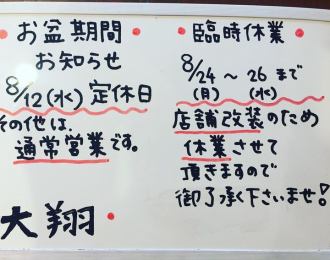 お盆期間
お知らせ
8/12(水) 定休日
その他は、
通常営業です。
大翔
臨時休業
8/24 ~ 26 まで
(月) (水)
店舗改装のため
休業させて
頂きますので
御了承下さいませ!